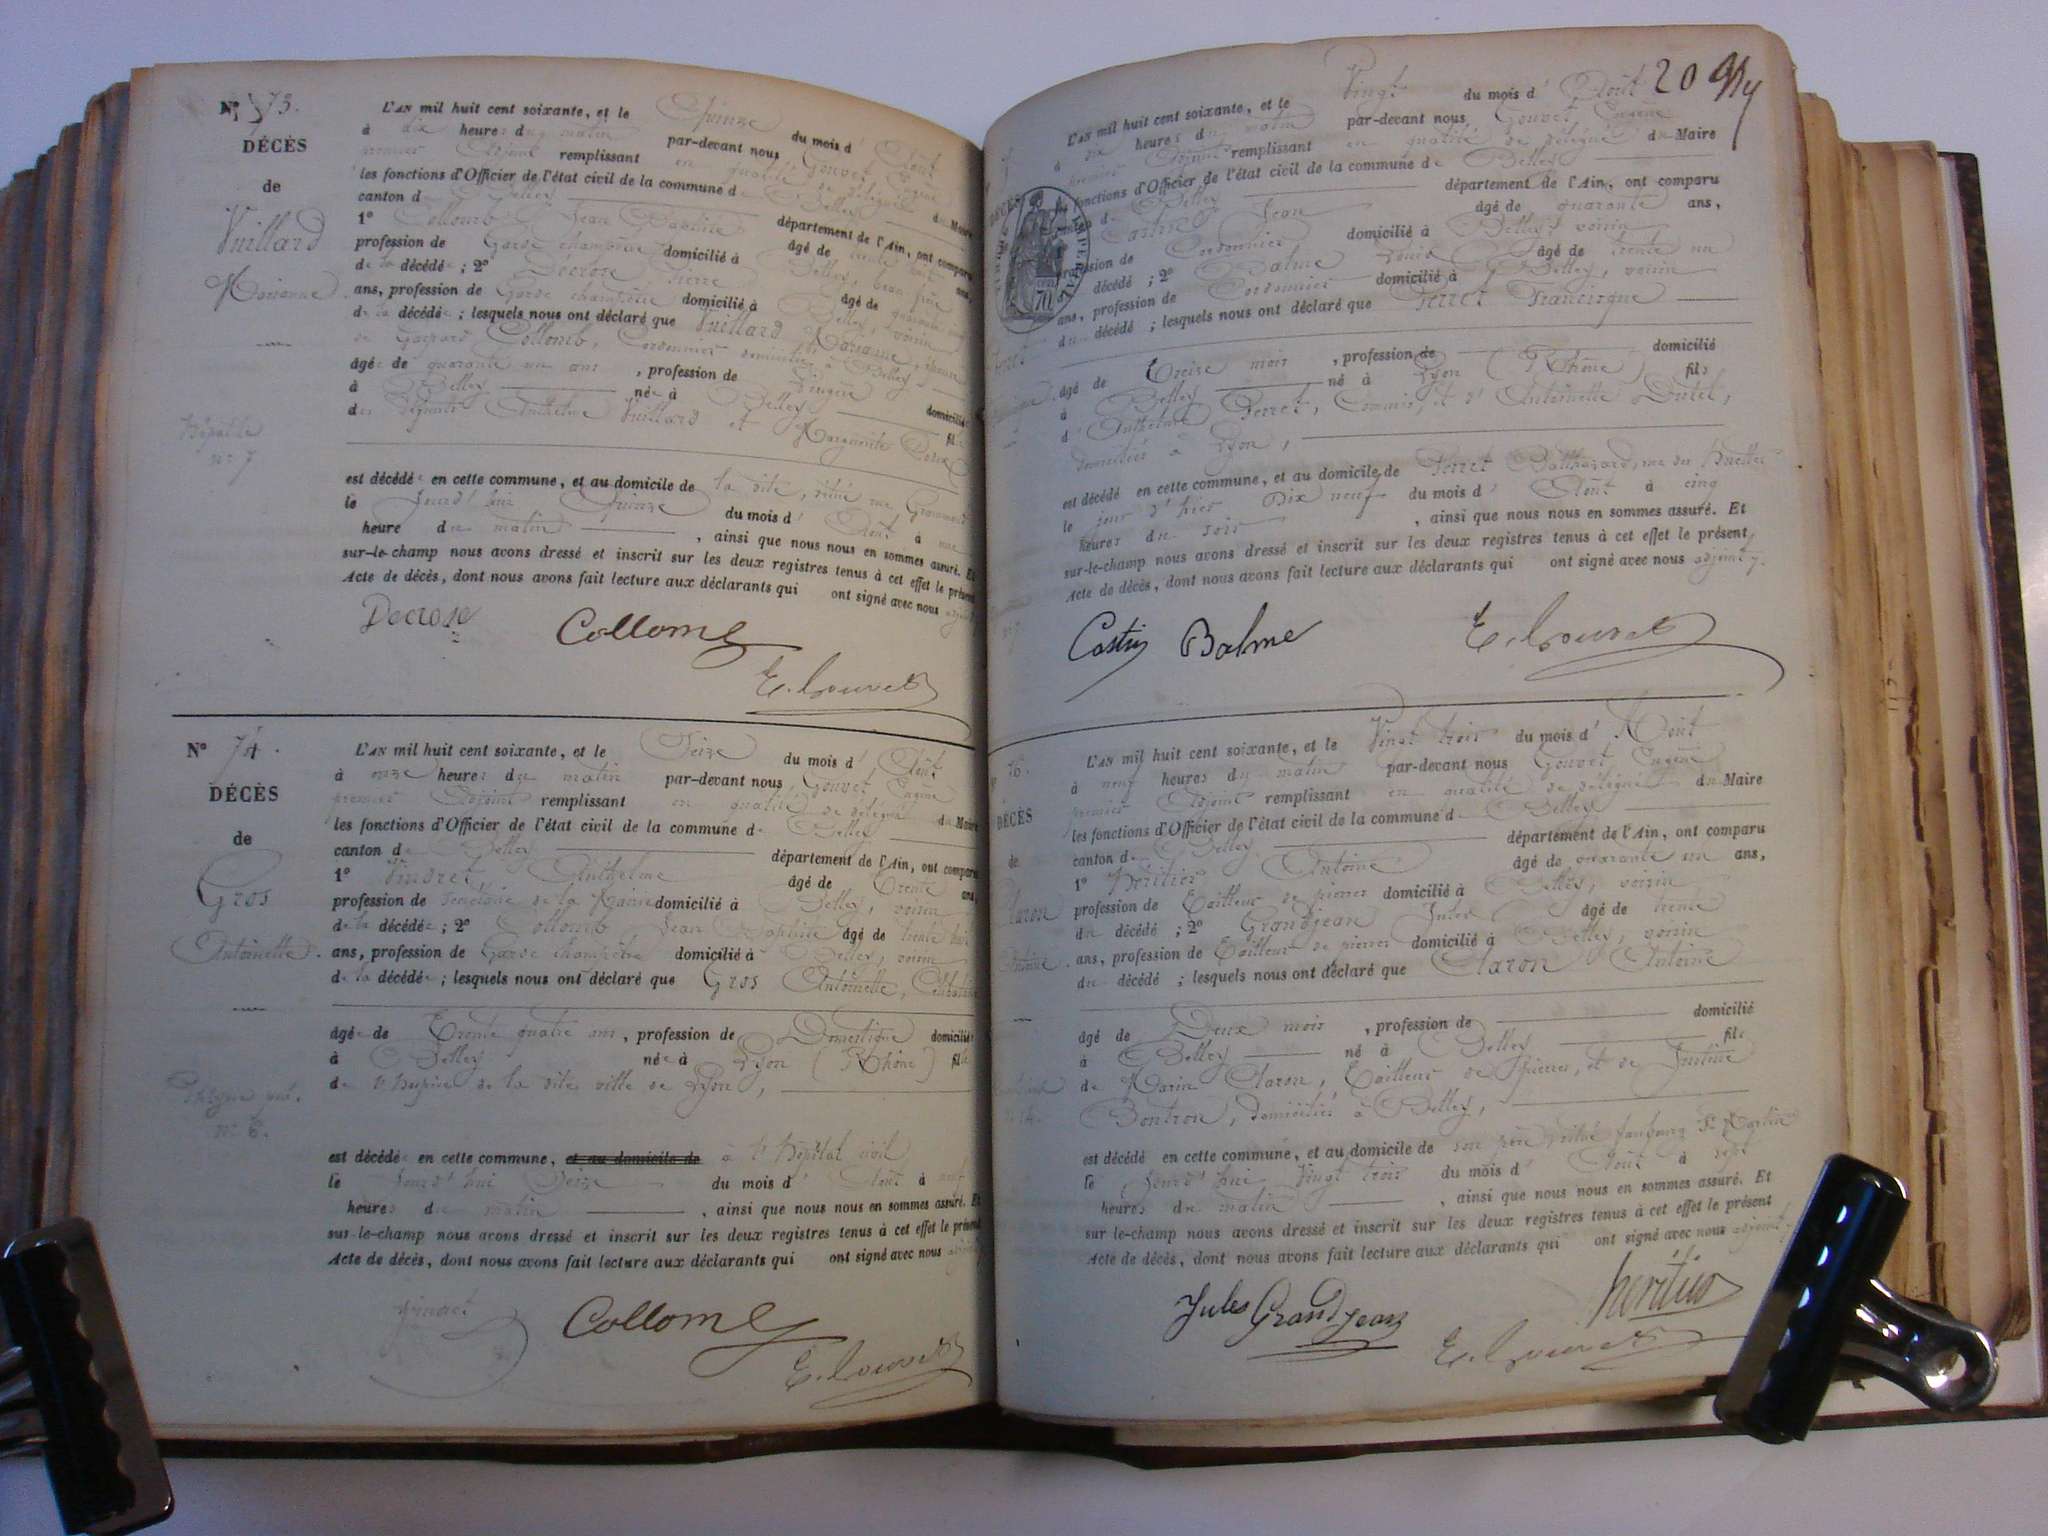 N° 73.
DÉCÈS
de
Vuillard
Marianne
Hépatite
n° 7
L'AN mil huit cent soixante, et le Quinze du mois d' Août
à dix heures du matin par-devant nous, Gouvet, Eugène
premier Adjoint remplissant en qualité de délégué du Maire
les fonctions d'Officier de l'état civil de la commune de Belley
canton de Belley département de l'Ain, ont comparu
1° Collomb Jean Baptiste âgé de trente huit ans,
profession de Garde champêtre domicilié à Belley, beau frère
de la décédée; 2° Decrose Pierre âgé de quarante
ans, profession de Garde champêtre domicilié à Belley, voisin
de la décédée; lesquels nous ont déclaré que Vuillard Marianne,
de Gaspard Collomb, Cordonnier domicilié à Belley
âgée de quarante un ans, profession de Lingère domiciliée
à Belley née à Belley fille
des défunts Anthelme Vuillard et Marguerite
est décédée en cette commune, et au domicile de la dite, située rue Grammont
le jourd'hui Quinze du mois d' Août à une
heure du matin, ainsi que nous nous en sommes assuré. Et
sur-le-champ nous avons dressé et inscrit sur les deux registres tenus à cet effet le présent
Acte de décès, dont nous avons fait lecture aux déclarants qui ont signé avec nous adjoint
Decrose Collomb
E. Gouvet
N° 74.
DÉCÈS
de
Gros
Antoinette.
n° 6.
L'AN mil huit cent soixante, et le Seize du mois d' Août
à onze heures du matin par-devant nous Gouvet, Eugène
premier Adjoint remplissant en qualité de délégué du Maire
les fonctions d'Officier de l'état civil de la commune de Belley
canton de Belley département de l'Ain, ont comparu
1° Vindret, Anthelme âgé de Trente ans,
profession de de la Mairie domicilié à Belley, voisin
de la décédée; 2° Collomb, Jean Baptiste âgé de trente huit
ans, profession de Garde champêtre domicilié à Belley, voisin
de la décédée; lesquels nous ont déclaré que Gros Antoinette, Célibataire
âgée de Trente quatre ans, profession de Domestique domiciliée
à Belley née à Lyon (Rhône) fille
de l'hospice de la dite ville de Lyon,
est décédée en cette commune, et au domicile de à l'hôpital civil
le jourd'hui Seize du mois d' Août à neuf
heures du matin, ainsi que nous nous en sommes assuré. Et
sur-le-champ nous avons dressé et inscrit sur les deux registres tenus à cet effet le présent
Acte de décès, dont nous avons fait lecture aux déclarants qui ont signé avec nous adjoint
Vindret Collomb
E. Gouvet
20
L'AN mil huit cent soixante, et le Vingt du mois d' Août
à dix heures du matin par-devant nous Gouvet, Eugène
premier Adjoint remplissant en qualité de délégué du Maire
les fonctions d'Officier de l'état civil de la commune de Belley
canton de Belley département de l'Ain, ont comparu
1° Castin Jean âgé de quarante ans,
profession de Cordonnier domicilié à Belley, voisin
du décédé; 2° Balme Louis âgé de trente un
ans, profession de Cordonnier domicilié à Belley, voisin
du décédé; lesquels nous ont déclaré que Perret Francisque
âgé de Treize mois, profession de domicilié
à Belley né à Lyon (Rhône) fils
d' Anthelme Perret, Commis, et d'Antoinette Dutel,
domiciliés à Lyon,
est décédé en cette commune, et au domicile de Perret Balthazard, rue des
le jour d'hier Dix neuf du mois d' Août à cinq
heures du soir, ainsi que nous nous en sommes assuré. Et
sur-le-champ nous avons dressé et inscrit sur les deux registres tenus à cet effet le présent
Acte de décès, dont nous avons fait lecture aux déclarants qui ont signé avec nous adjoint
Castin Balme E. Gouvet
76.
DÉCÈS
de
Claron
Antoine.
L'AN mil huit cent soixante, et le Vingt trois du mois d' Août
à neuf heures du matin par-devant nous Gouvet, Eugène
premier Adjoint remplissant en qualité de délégué du Maire
les fonctions d'Officier de l'état civil de la commune de Belley
canton de Belley département de l'Ain, ont comparu
1° Héritier Antoine âgé de quarante un ans,
profession de Tailleur de pierres domicilié à Belley, voisin
du décédé; 2° Grandjean Jules âgé de trente
ans, profession de Tailleur de pierres domicilié à Belley, voisin
du décédé; lesquels nous ont déclaré que Claron Antoine
âgé de Deux mois, profession de domicilié
à Belley né à Belley fils
de Marin Claron, Tailleur de pierres, et de Justine
Bontron, domiciliés à Belley,
est décédé en cette commune, et au domicile de son père, situé faubourg St Martin
le jourd'hui vingt trois du mois d' Août à sept
heures du matin, ainsi que nous nous en sommes assuré. Et
sur-le-champ nous avons dressé et inscrit sur les deux registres tenus à cet effet le présent
Acte de décès, dont nous avons fait lecture aux déclarants qui ont signé avec nous adjoint
Jules Grandjean héritier
E. Gouvet